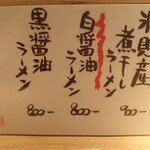 煮干し
ラーメン
900-
白醤油
ラーメン
800-
黒醤油
ラーメン
800-